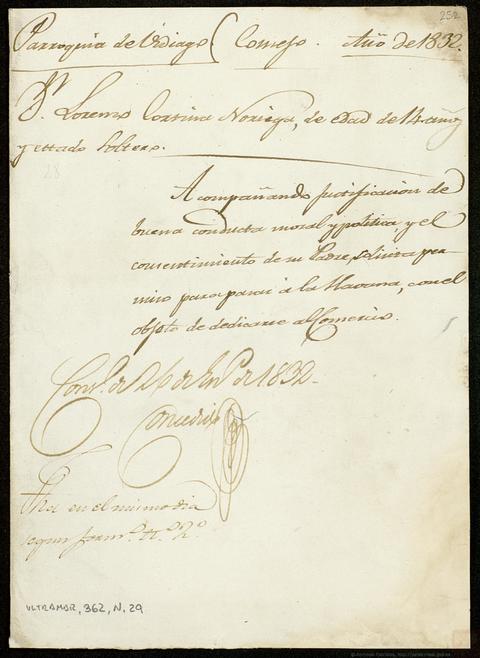 252
Parroquia de Vidiago ( Consejo. Año de 1832.
Dn. Lorenzo Cortina Noriega, de edad de 14 años
y estado soltero.
28
Acompañando justificacion de
buena conducta moral y politica, y el
consentimiento de su Padre, solicita per-
miso para pasar á la Havana, con el
objeto de dedicarse al Comercio.
de 26 de En.º de 1832.
Concedido
Fha en el mismo dia
segun form.º n.º 2.º
ULTRAMAR, 362, N. 29